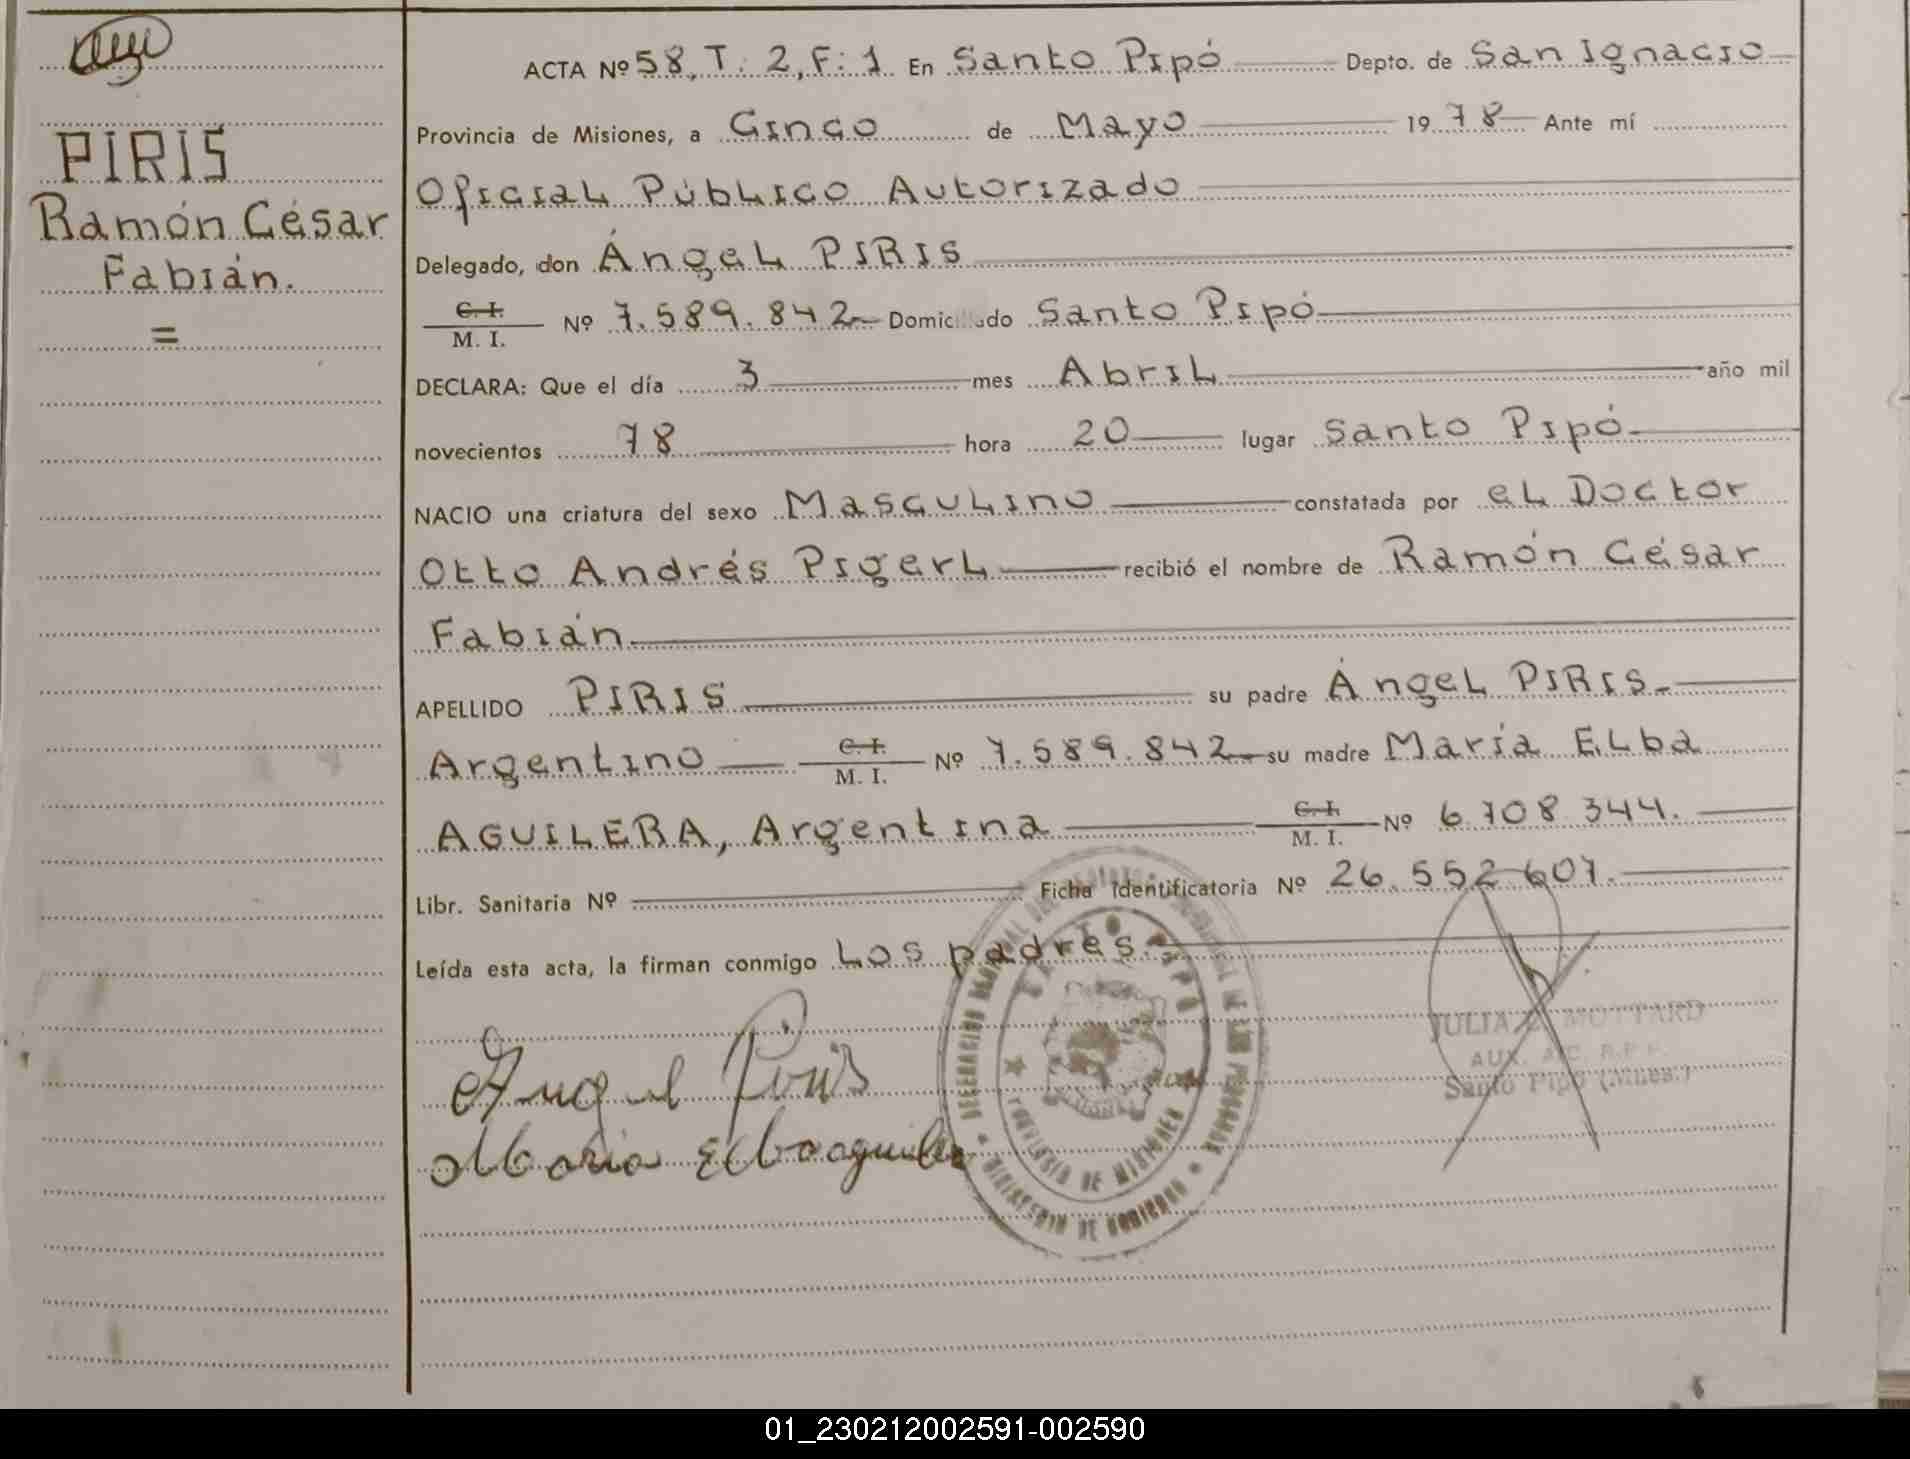 PIRIS
Ramón César
Fabián.
=
ACTA Nº 58, T: 2, F: 1 En Santo Pipó Depto. de San Ignacio
Provincia de Misiones, a Cinco de Mayo 19 78 Ante mí
Oficial Público Autorizado
Delegado, don Ángel PIRIS
C. I.
M. I. Nº 7.589.842 Domiciliado Santo Pipó
DECLARA: Que el día 3 mes Abril año mil
novecientos 78 hora 20 lugar Santo Pipó
NACIO una criatura del sexo Masculino constatada por el Doctor
Otto Andrés Pigerl recibió el nombre de Ramón César
Fabián
APELLIDO PIRIS su padre Ángel PIRIS
Argentino C. I. M. I. Nº 7.589.842 su madre María Elba
AGUILERA, Argentina C. I. M. I. Nº 6.708.344.
Libr. Sanitaria Nº Ficha Identificatoria Nº 26.552.607.
Leída esta acta, la firman conmigo Los padres.
Angel Piris
Maria Elba aguilera
SANTO PIPO
PROVINCIA DE MISIONES
MINISTERIO DE GOBIERNO
JULIA MOTTARD
AUX.
Santo Pipó (Mnes.)
01_230212002591-002590